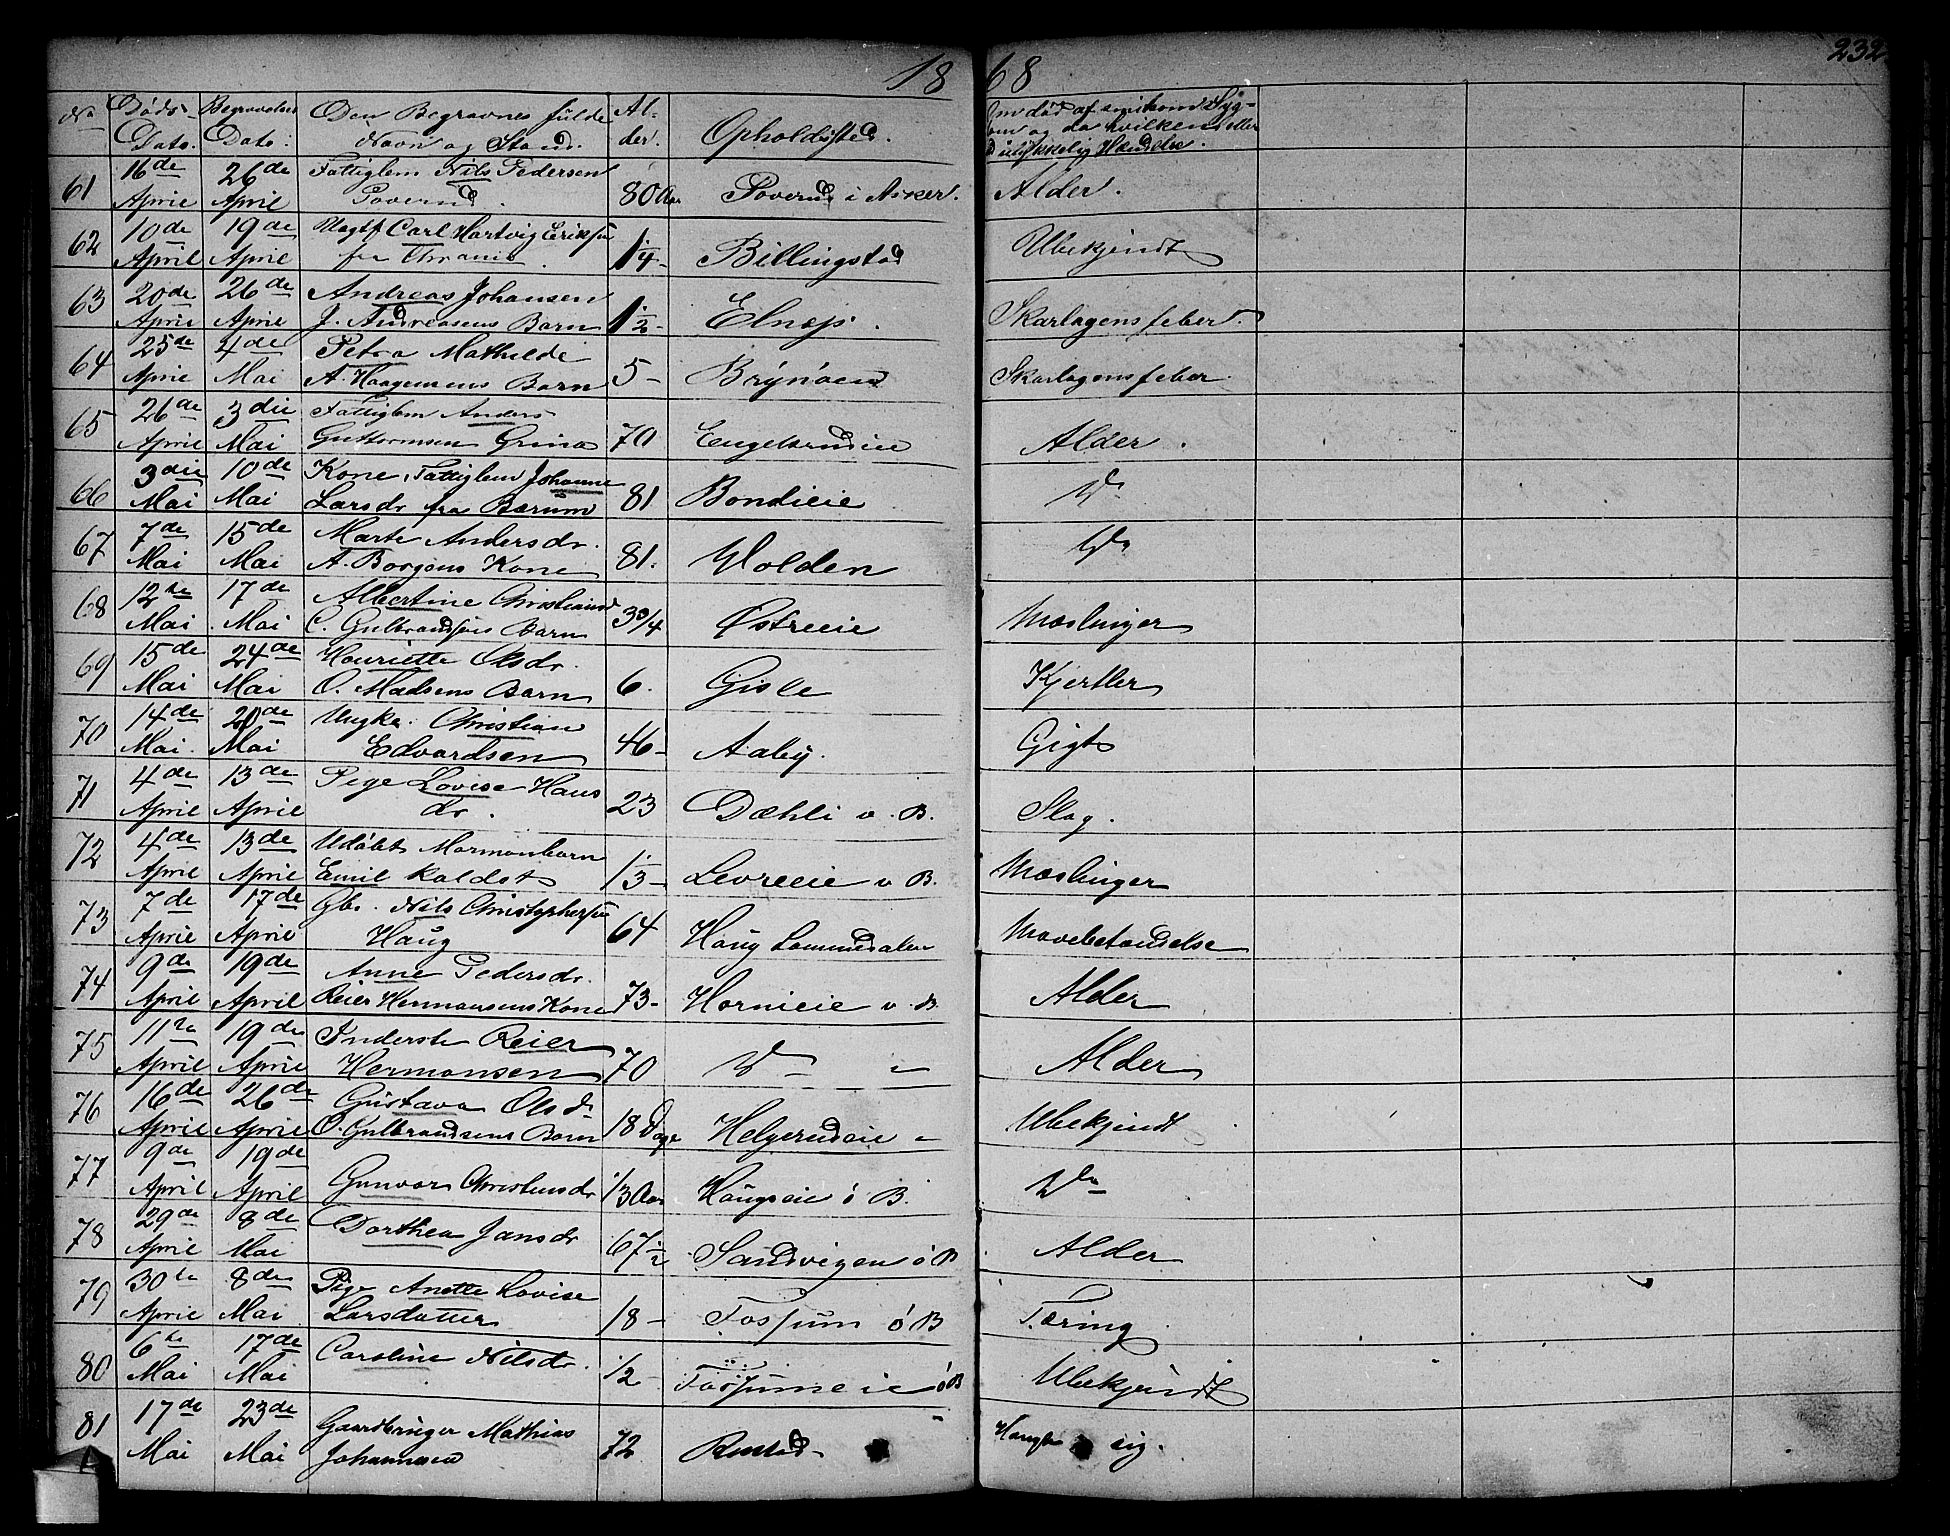 1868 232
No Døds- Dato. Begravelses Dato. Den Begravnes fulde Navn og Stand. Al- der. Opholdssted.
Om død af smitsom Syg-
dom og da hvilken eller
ulykkelig Hændelse.
61 16de April 26de April Fattiglem Nils Pedersen
Poverud. 80 Aar Poverud i Asker. Alder.
62 10de April 19de April Ungtf Carl Hartvig Eriksen
fra 1/4 - Billingstad Ubekjendt
63 20de April 26de April Andreas Johansen
J. Andreasens Barn 1/2 - Elnæs. Skarlagensfeber.
64 25de April 4de Mai Petra Mathilde
A. Haagensens Barn 5 - Brønøen Skarlagensfeber.
65 26de April 3die Mai Fattiglem Anders
Guttormsen Grina 70 Engelsrudeie Alder.
66 3die Mai 10de Mai Kone, Fattiglem Johanne
Larsdr fra Bærum 81 Bondieie Do
67 7de Mai 15de Mai Marte Andersdr.
A. Borgens Kone 81. Holden Do
68 12te Mai 17de Mai Albertine Christiansd
C. Gulbrandsens Barn 3 3/4 Østreeie Mæslinger
69 15de Mai 24de Mai Henriette Olsdr.
O. Madsens Barn 6. Gisle Kjertler
70 14de Mai. 20de Mai Ungka. Christian
Edvardsen 46 - Aaby. Gigt
71 4de April 13de April Pige Lovise Hans
dr. 23 Dæhli v. B. Slag.
72 4de April 13de April Udøbt Mormonbarn
Emil kaldet 1/3 - Levreeie v B. Mæslinger
73 7de April 17de April Gbr. Nils Christophersen
Haug 64 Haug Lommedalen Mavebetændelse
74 9de April 19de April Anne Pedersdr.
Reier Hermansens Kone 73 - Hornieie v. B Alder
75 11te April 19de April Inderste Reier
Hermansen 70 Do " Alder
76 16de April 26de April Gustava Olsdr
O. Gulbrandsens Barn 18 Dage Helgerudeie " Ubekjendt.
77 9de April 19de April Gunvor Christensdr 1/3 Aar Haugseie ó B. Do
78 29de April 8de Mai Dorthea Jansdr 67 1/2 Sandvigen ó B Alder
79 30te April 8de Mai Pige Anette Lovise
Larsdatter 18 - Fossum ó B Tæring.
80 6te Mai 17de Mai Caroline Nilsdr. 1/2 - Fossumeie ó B Ubekjendt
81 17de Mai 23de Mai Gaardbruger Mathias
Johannesen 72 Rustad - Hængte sig.